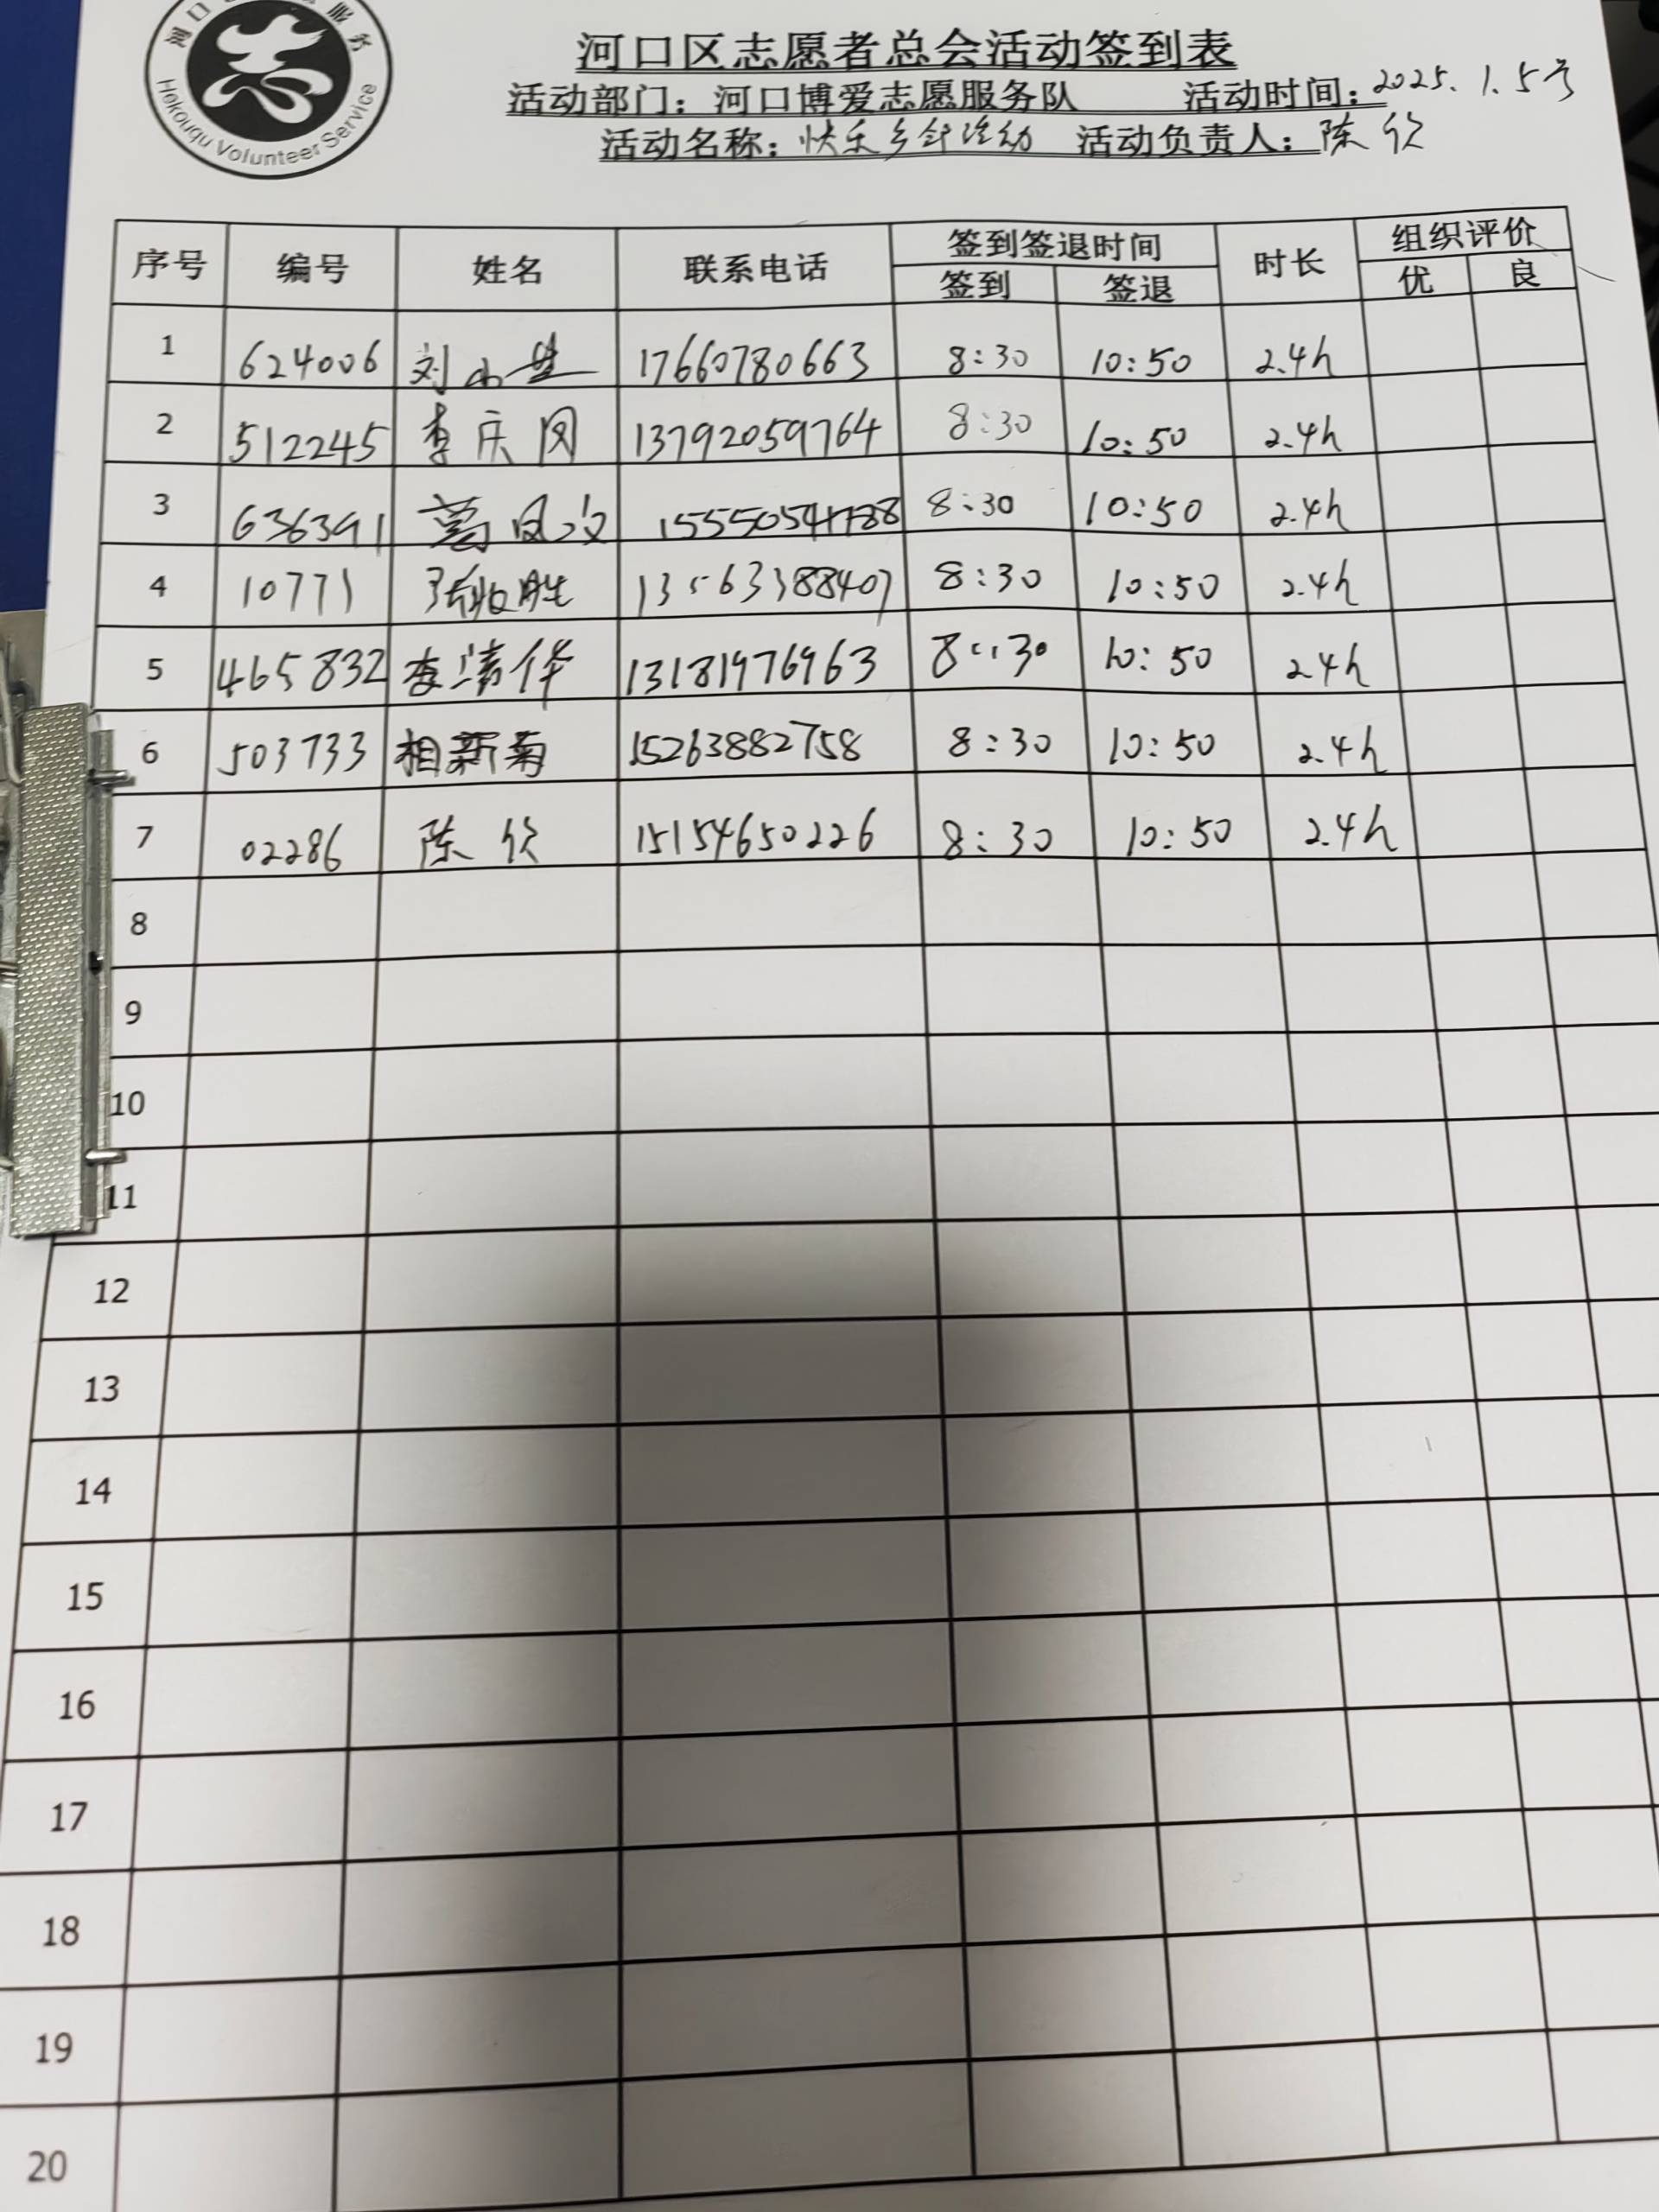 河口 服务
Hekouqu Volunteer Service
河口区志愿者总会活动签到表
活动部门：河口博爱志愿服务队 活动时间：2025.1.5号
活动名称：快乐乡邻活动 活动负责人：陈欣
序号 编号 姓名 联系电话 签到签退时间 时长 组织评价
签到 签退 优 良
1 624006 刘小 17660780663 8:30 10:50 2.4h
2 512245 李庆 13792059764 8:30 10:50 2.4h
3 636391 葛凤 8:30 10:50 2.4h
4 10771 张胜 13563388407 8:30 10:50 2.4h
5 465832 李清华 13181976963 8:30 10:50 2.4h
6 503733 相新菊 15263882758 8:30 10:50 2.4h
7 02286 陈欣 15154650226 8:30 10:50 2.4h
8
9
10
11
12
13
14
15
16
17
18
19
20